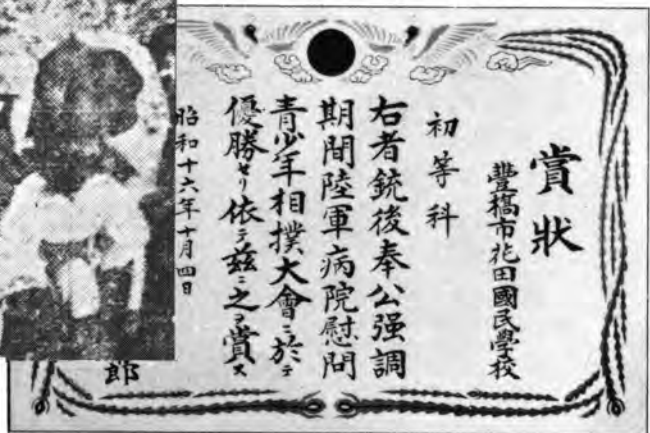 賞狀
豐橋市花田國民學校
初等科
右者銃後奉公强調
期間陸軍病院慰問
青少年相撲大會ニ於テ
優勝セリ依テ玆ニ之ヲ賞ス
昭和十六年十月四日
郎